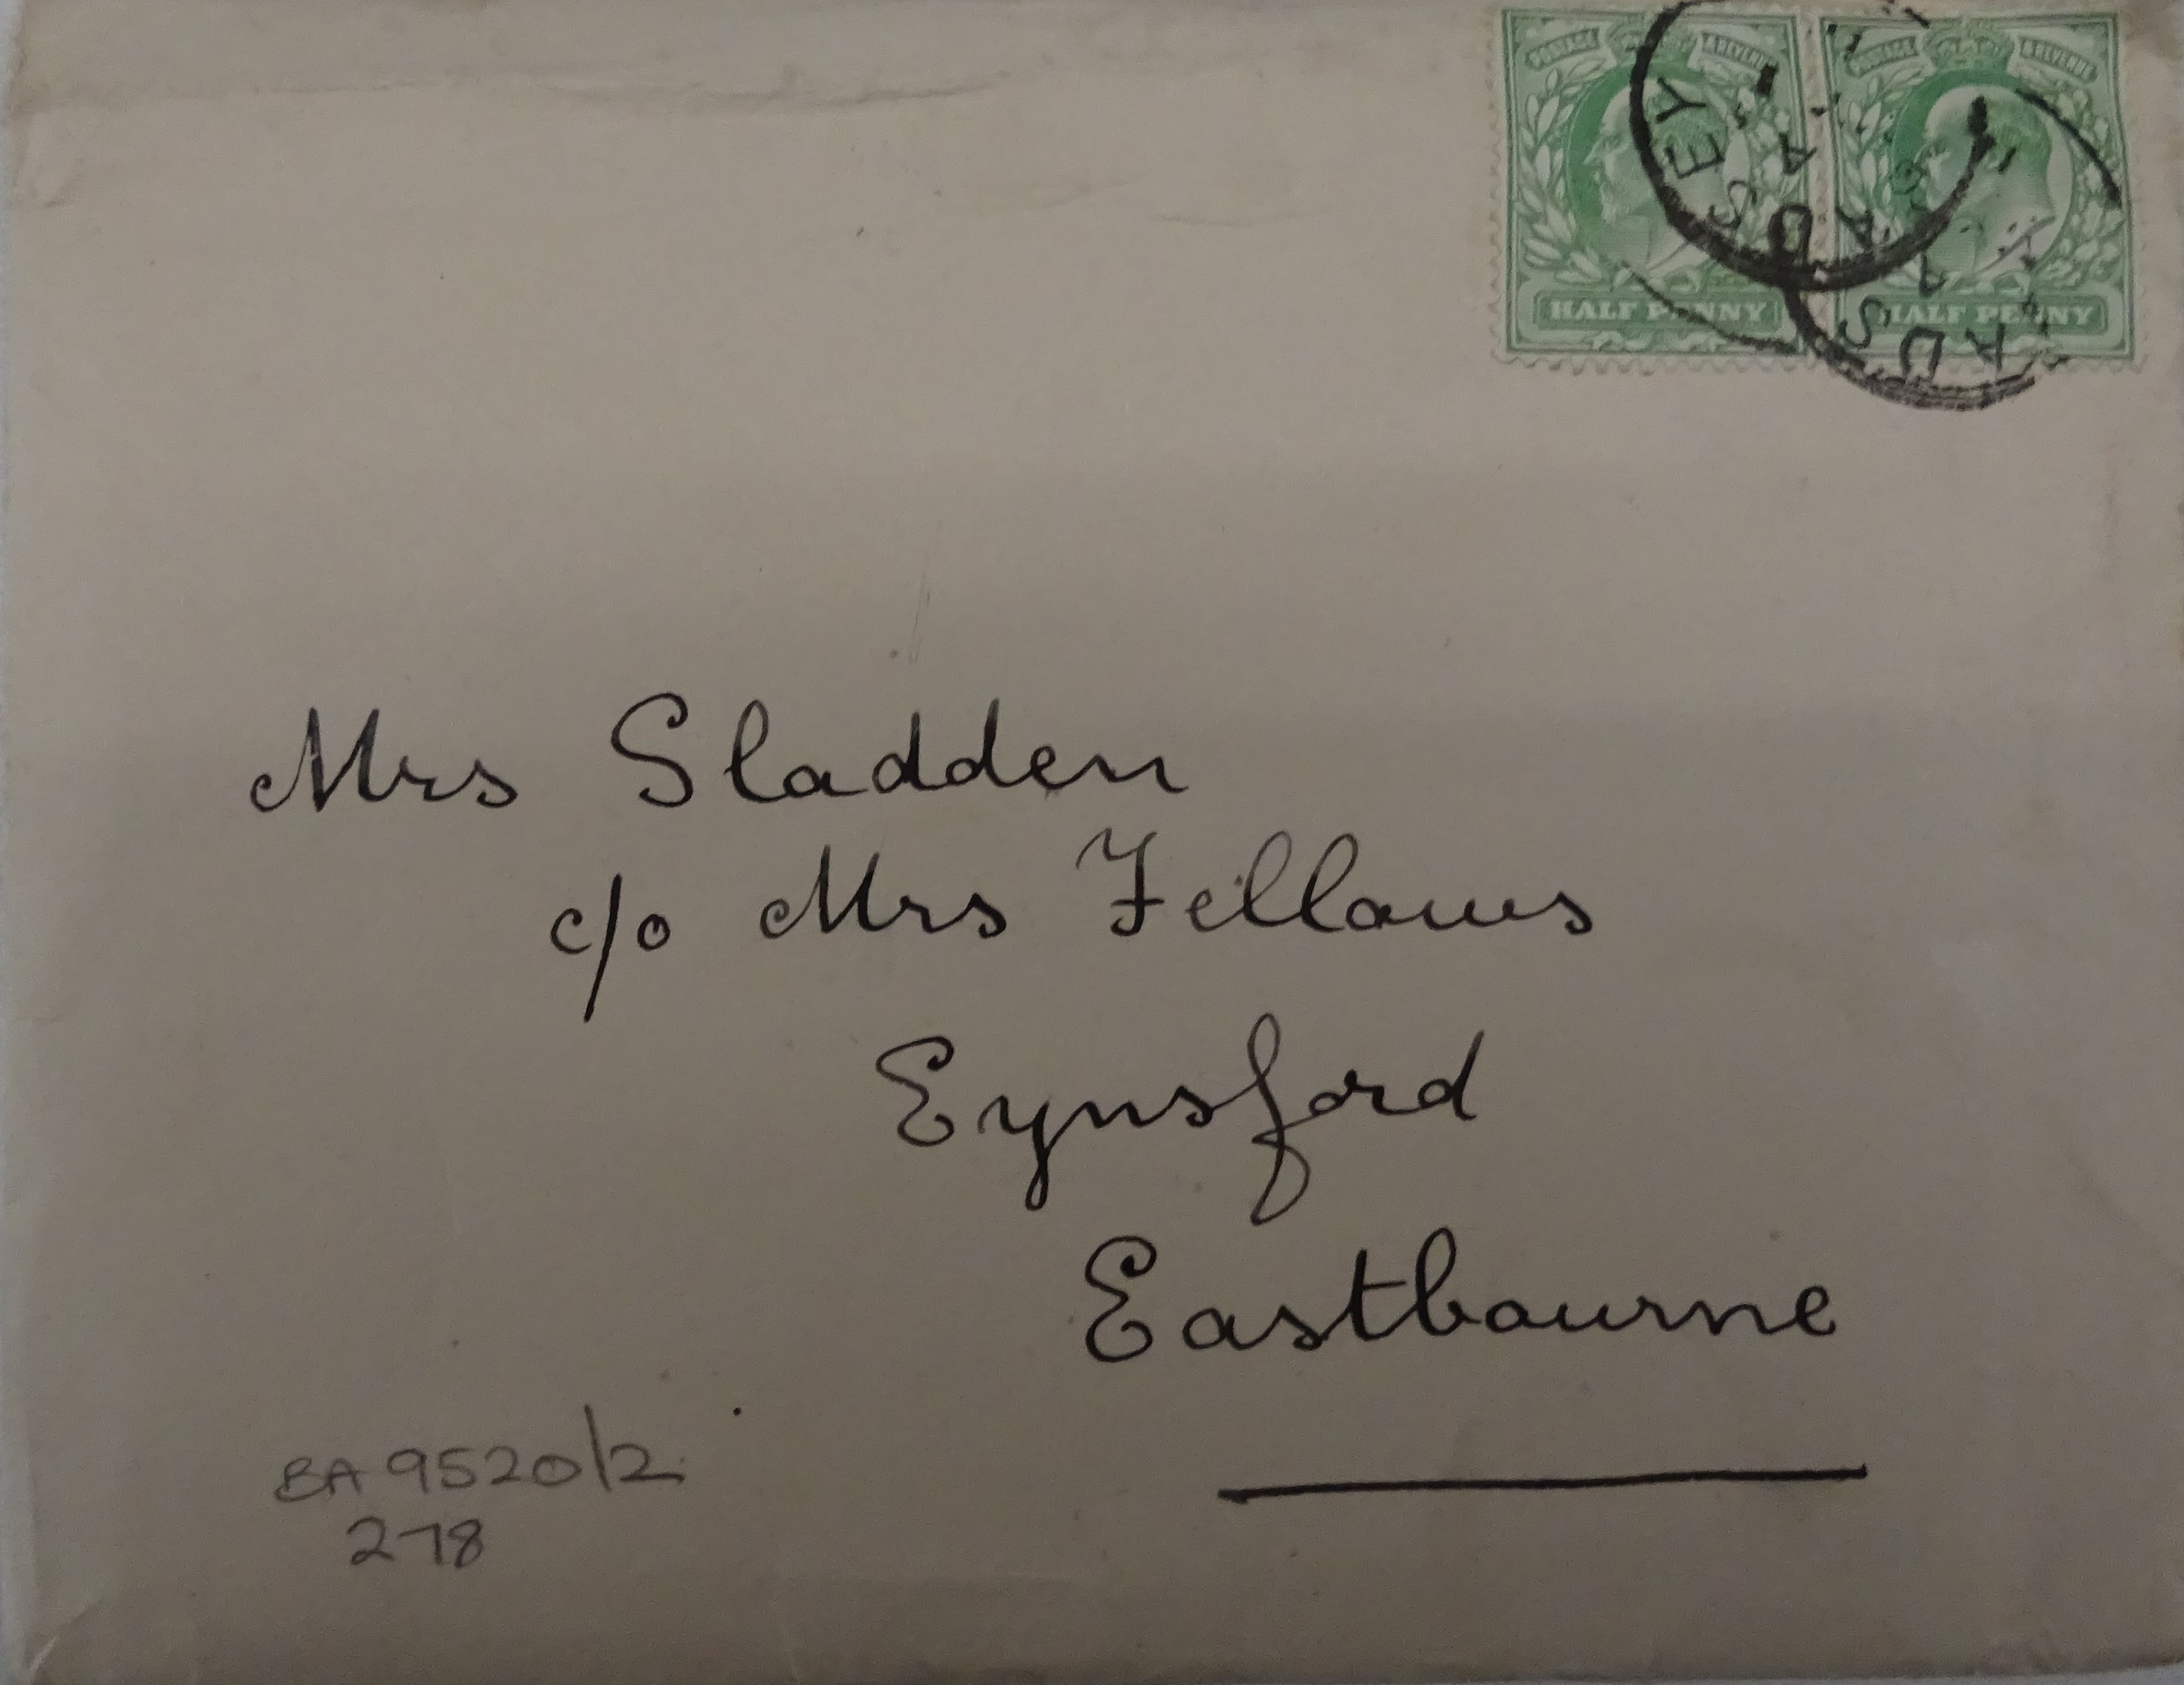 POSTAGE & REVENUE POSTAGE & REVENUE
HALF PENNY HALF PENNY
Mrs Sladden
c/o Mrs Fellows
Eynsford
Eastbourne
BA 9520/2
278